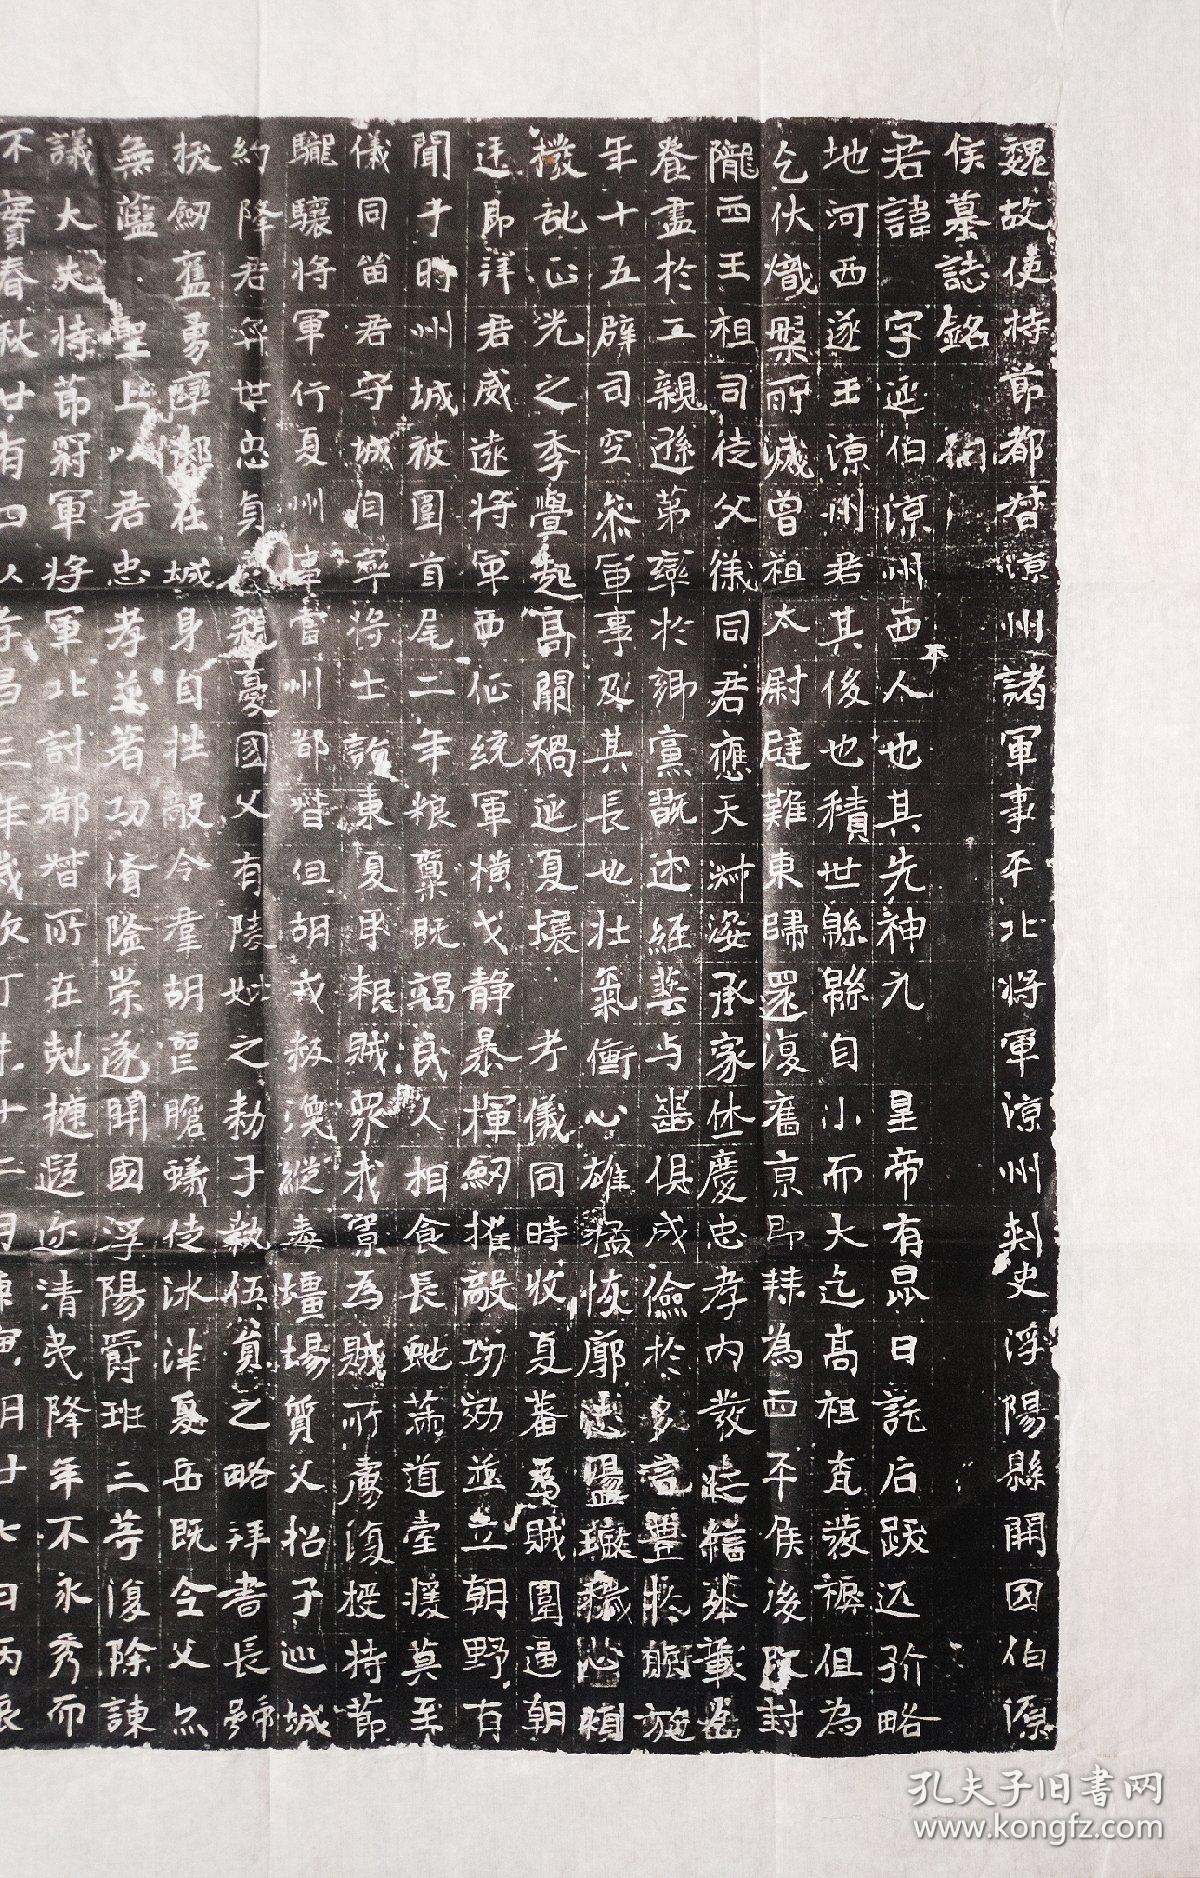 魏故使持節都督涼州諸軍事平北將軍涼州刺史浮陽縣開国伯源
侯墓誌銘 伯
君諱 字延伯涼州西平人也其先神元 皇帝有昆曰託后跋近祢略
地河西遂王涼州君其後也積世緜緜自小而大迄高祖 為
乞伏熾槃所滅曾祖太尉避難東歸還復舊京即拜為西平侯後改封
隴西王祖司徒父儀同君應天 承家休慶忠孝內發
養盡於工親遜第率於鄉黨既述經藝与 俱成儉於多 豐於 施
年十五辟司空參軍事及其長也壯氣衝心雄猛恢廓
撥乱正光之季舋起高闕禍延夏壤 考儀同時牧夏蕃為賊圍逼朝
廷即 君威遠將軍西征統軍橫戈靜暴揮劒摧敵功効並立朝野有
聞于時州城被圍首尾二年粮 既竭民人相食長虵 道臺援莫至
儀同留君守城自率將士詣東夏 賊眾我寡為賊所虜復授持節
驪驤將軍行夏州事當州都督但胡戎叛渙縱毒壃場質父招子巡城
約降君 世忠貞 親憂國父有陵 之勑子 伍負之略拜書長號
拔劒舊勇率鄉在城身自挫敵令羣胡 瞻 徒冰泮夏岳既全父亦
無 聖上以君忠孝並著功濟 崇遂開國浮陽爵班三等復除諫
議大夫持節 軍將軍北討都督所在剋捷遐迩清 降年不永秀而
不實春秋廿有四以孝昌三年歲次丁未十二月 寅朔廿七日丙辰
孔夫子旧書网
www.kongfz.com